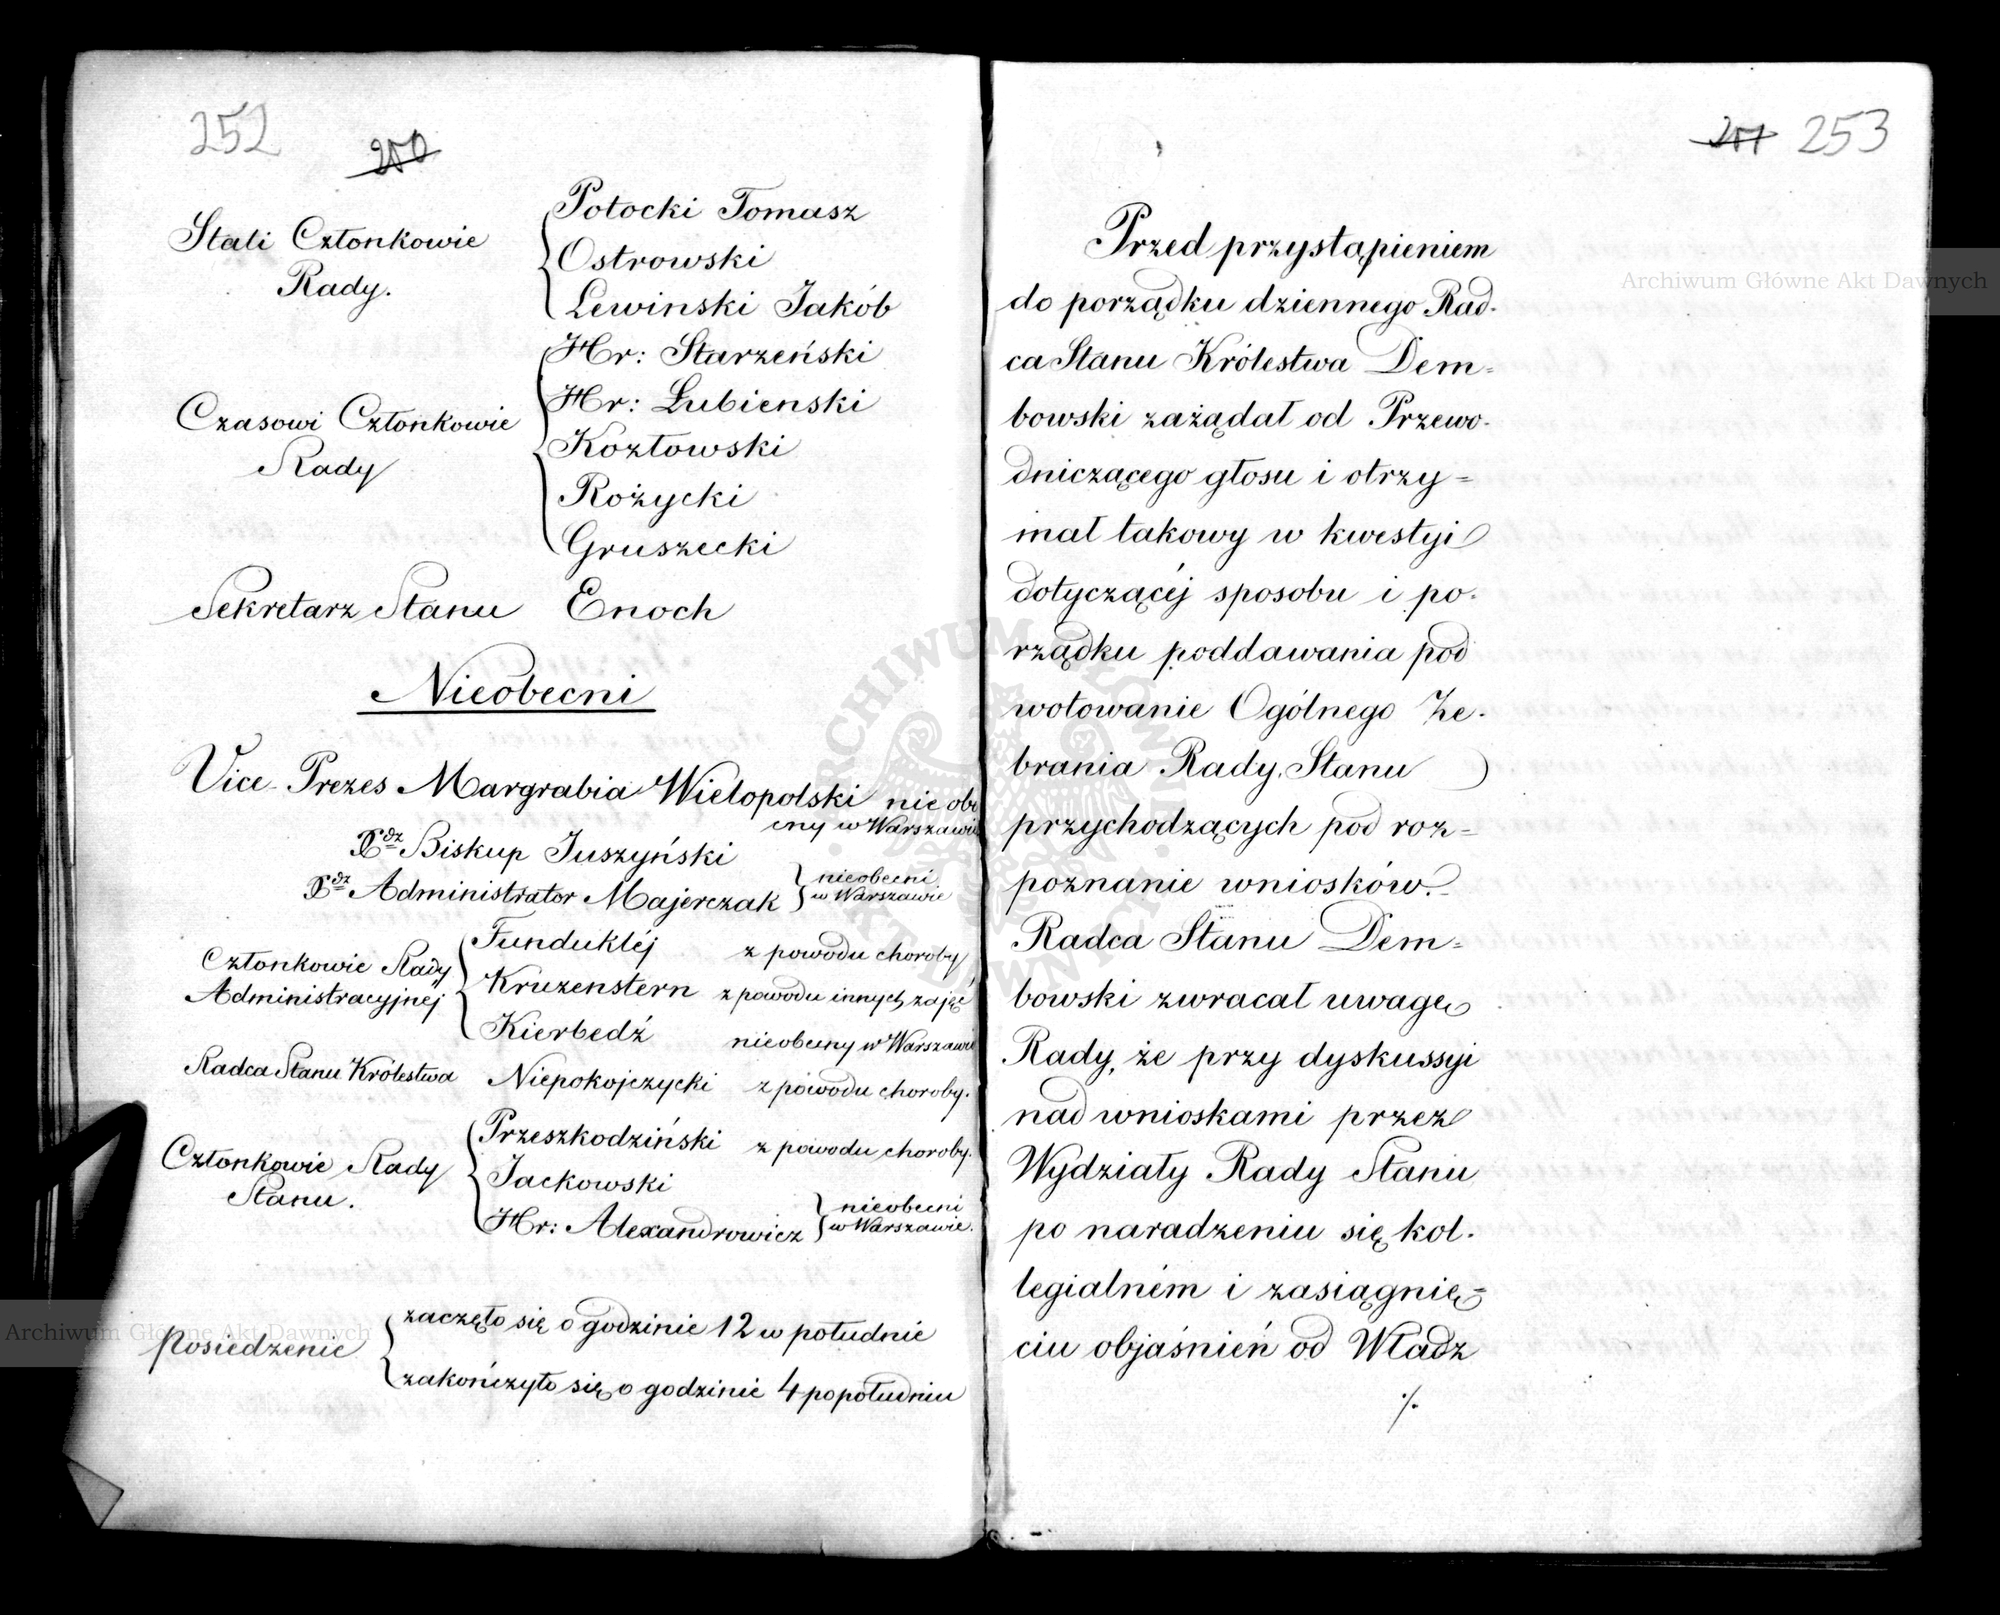 252
250
Stali Członkowie
Rady.
Potocki Tomasz
Ostrowski
Lewinski Jakób
Czasowi Członkowie
Rady
Hr: Starzeński
Hr: Łubienski
Kozłowski
Rożycki
Gruszecki
Sekretarz Stanu Enoch
Nieobecni
Vice-Prezes Margrabia Wielopolski nie obe
cny w Warszawie
Xdz Biskup Juszyński
Xdz Administrator Majerczak
nieobecni
w Warszawie
Członkowie Rady
Administracyjnéj
Fundukléj z powodu choroby
Kruzenstern z powodu innych zajęć
Kierbedź nieobecny w Warszawie
Radca Stanu Królestwa Niepokojczycki z powodu choroby.
Członkowie Rady
Stanu.
Przeszkodziński z powodu choroby.
Jackowski
Hr: Alexandrowicz
nieobecni
w Warszawie.
Posiedzenie
zaczęło się o godzinie 12 w południe
zakończyło się o godzinie 4 popołudniu
251 253
Przed przystąpieniem
do porządku dziennego Rad-
ca Stanu Królestwa Dem=
bowski zażądał od Przewo-
dniczącego głosu i otrzy=
mał takowy w kwestyi
dotyczącéj sposobu i po-
rządku poddawania pod
wotowanie Ogólnego Ze-
brania Rady Stanu
przychodzących pod roz=
poznanie wniosków.
Radca Stanu Dem=
bowski zwracał uwagę
Rady, że przy dyskussyi
nad wnioskami przez
Wydziały Rady Stanu
po naradzeniu się kol-
legialném i zasiągnię=
ciu objaśnień od Władz
./.
Archiwum Główne Akt Dawnych
Archiwum Główne Akt Dawnych
ARCHIWUM GŁÓWNE AKT DAWNYCH